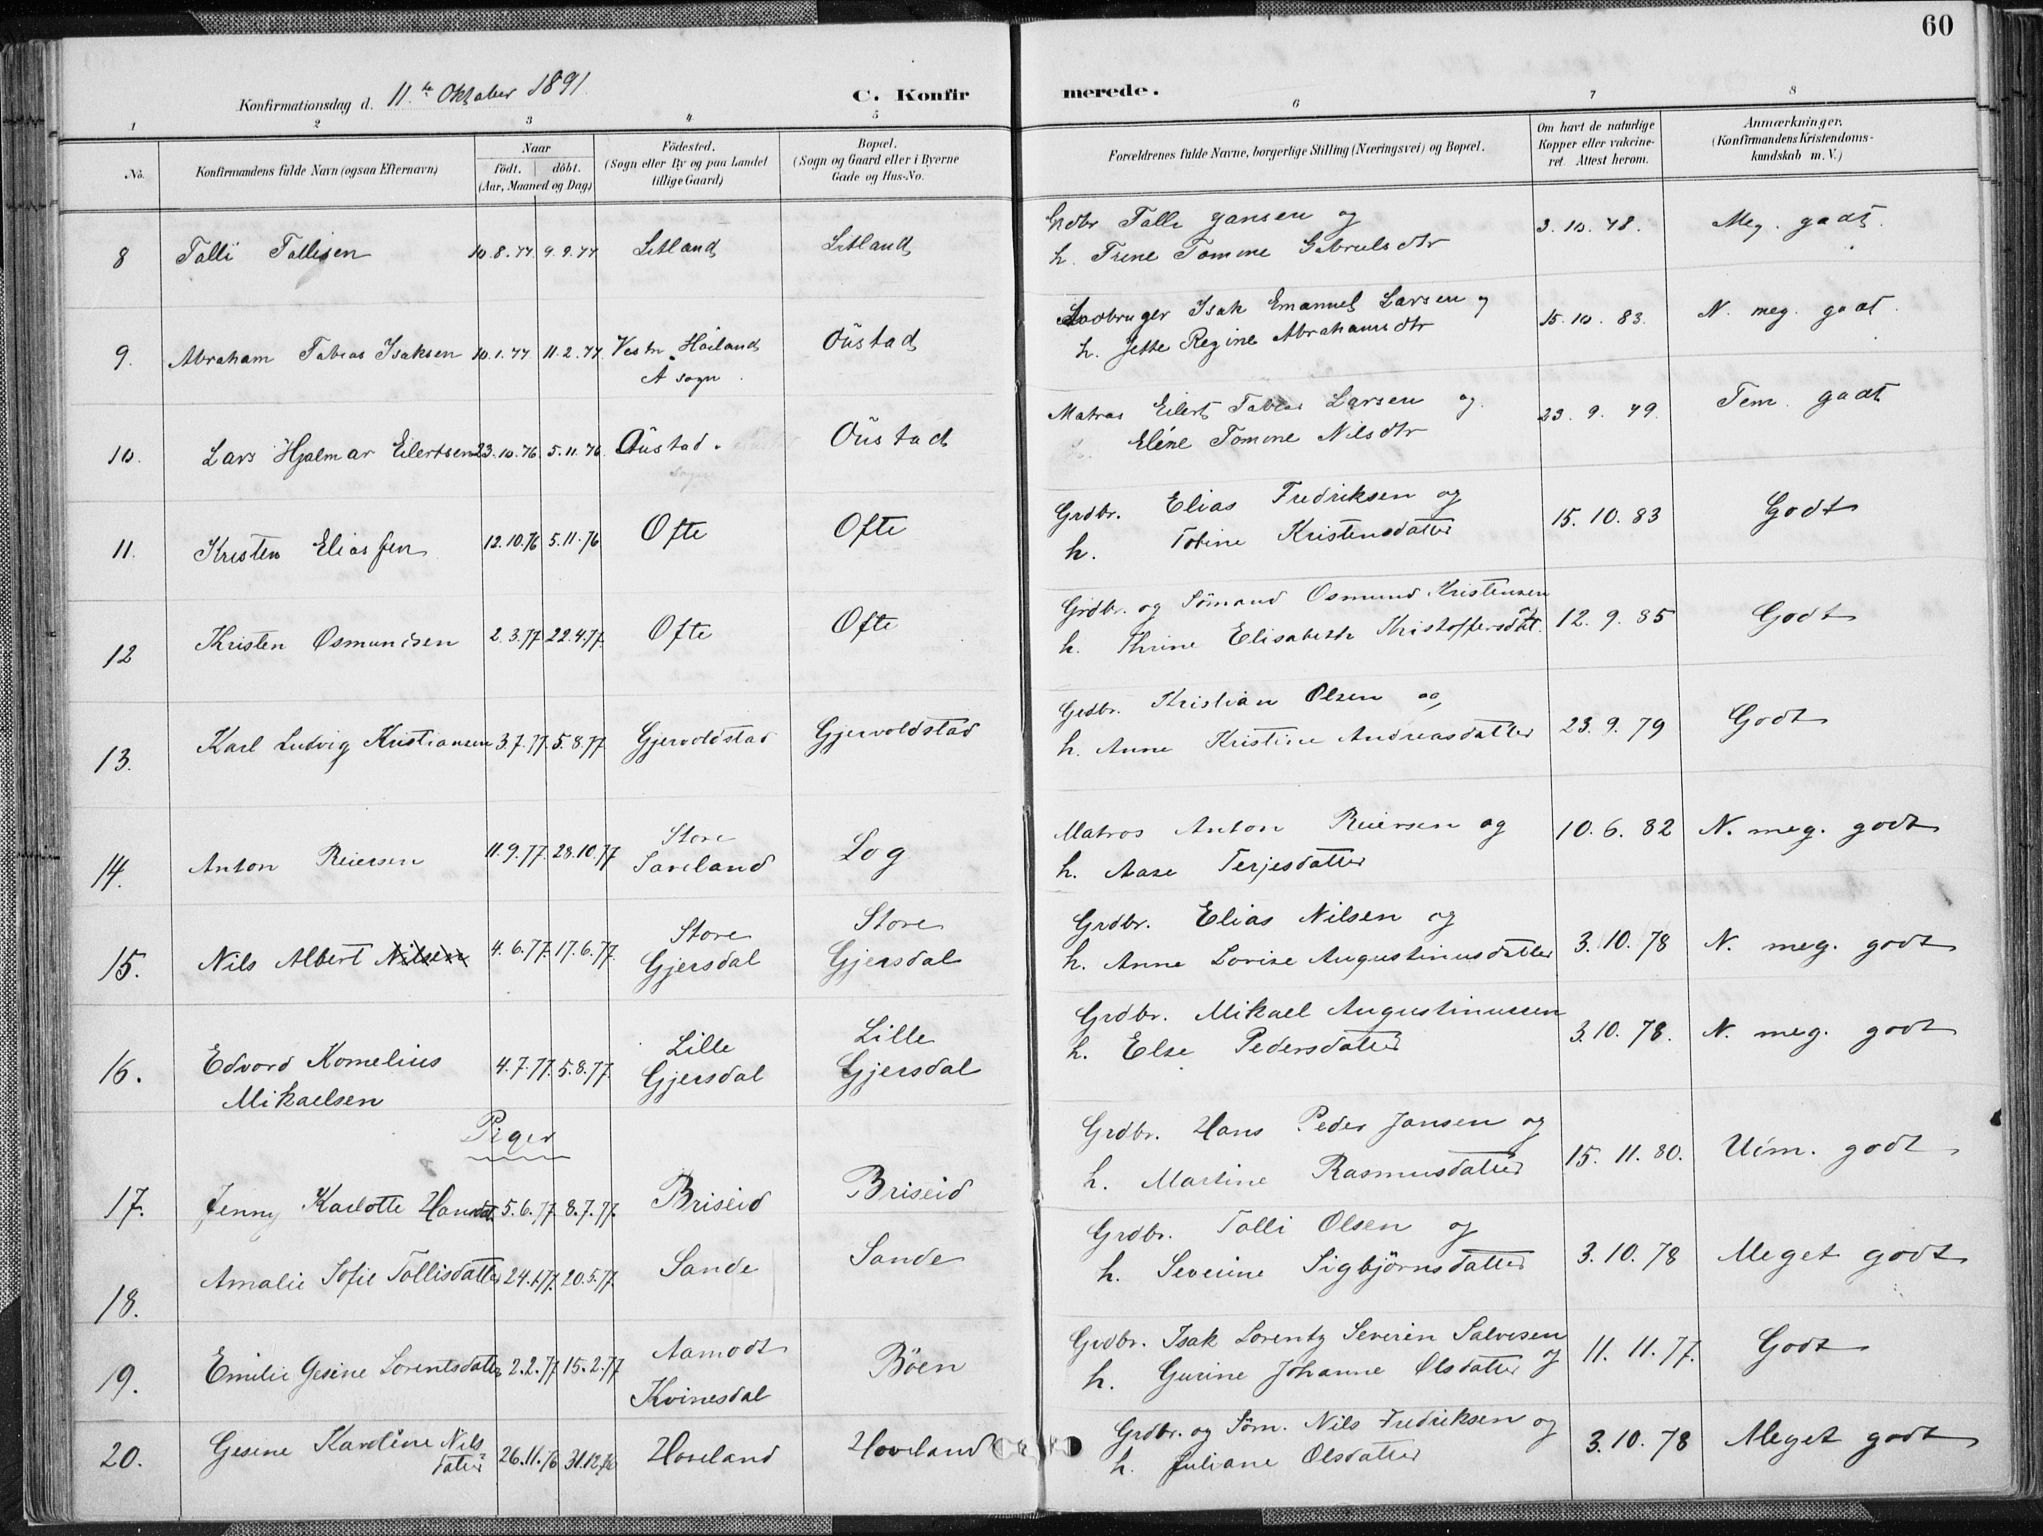 60
Konfirmationsdag d. 11.te Oktober 1891.
C. Konfirmerede.
1 2 3 4 5 6 7 8
No. Konfirmandens fulde Navn (ogsaa Efternavn) Naar födt. döbt. (Aar, Maaned og Dag) Födested. (Sogn eller By og paa Landet tillige Gaard) Bopæl. (Sogn og Gaard eller i Byerne Gade og Hus-No. Forældrenes fulde Navne, borgerlige Stilling (Næringsvei) og Bopæl. Om havt de naturlige Kopper eller vakcineret. Attest herom. Anmærkninger. (Konfirmandens Kristendomskundskab m. V.)
8 Talli Tallisen 10.8.77 9.9.77 Litland Litland Grdbr Talli Jansen og 3.10.78. Meg. godt.
h. Trene Tomine Gabrielsdtr
9. Abraham Tobias Isaksen 10.1.77 11.2.77 Vestr Höiland Öüstad Isak Emanuel Larsen og 15.10.83. N. meg. godt.
A sogn. h. Jette Regine Abrahamsdtr
10. Lars Hjalmar Eilertsen 23.10.76. 5.11.76 Öüstad. Öüstad Matros Eilert Tobias Larsen og 23.9.79. Tem. godt
Eléne Tomine Nilsdtr
11. Kristen Eliassen 12.10.76 5.11.76 Ofte Ofte Grdbr. Elias Fredriksen og 15.10.83 Godt
h. Tobine Kristensdatter
12 Kristen Osmundsen 2.3.77 22.4.77. Ofte Ofte Grdbr. og Sömand Osmund Kristensen 12.9.85 Godt
h. Thrine Elisabeth Kristoffersdat.
13. Karl Ludvig Kristiansen 3.7.77. 5.8.77 Gjervoldstad Gjervoldstad Grdbr. Kristian Olsen og 23.9.79 Godt
h. Anne Kristine Andreasdatter
14. Anton Reiersen 11.9.77. 28.10.77 Store Saveland Log Matros Anton Reiersen og 10.6.82 N. meg. godt
h. Aase Terjesdatter
15. Nils Albert Nilsen 4.6.77. 17.6.77. Store Gjersdal Store Gjersdal Grdbr. Elias Nilsen og 3.10.78 N. meg. godt
h. Anne Lovise Augustinusdatter
16. Edvard Kornelius Mikaelsen 4.7.77. 5.8.77. Lille Gjersdal Lille Gjersdal Grdbr. Mikael Augustinussen 3.10.78. N. meg. godt
h. Else Pedersdatter
Piger
17. Jenny Karlotte Hansdat. 5.6.77. 8.7.77. Briseid Briseid Grdbr. Hans Peder Jansen og 15.11.80. Uém. godt
h. Martine Rasmusdatter
18. Amalie Sofie Tollisdatter 20.5.77. Sande Sande Grdbr. Talli Olsen og 3.10.78 Meget godt
h. Severine Sigbjörnsdatter
19. Emilie Gesine Lorentsdatter 2.2.77 15.2.77 Aamodt Kvinesdal Böen Grdbr. Isak Lorentz Severin Salvesen og 11.11.77. Godt
h. Gurine Johanne Olsdatter
20. Gesine Karoline Nilsdatter 26.11.76 31.12.76 Hoveland Hoveland Grdbr. og Söm. Nils Fredriksen og 3.10.78 Meget godt
h. Juliane Olsdatter